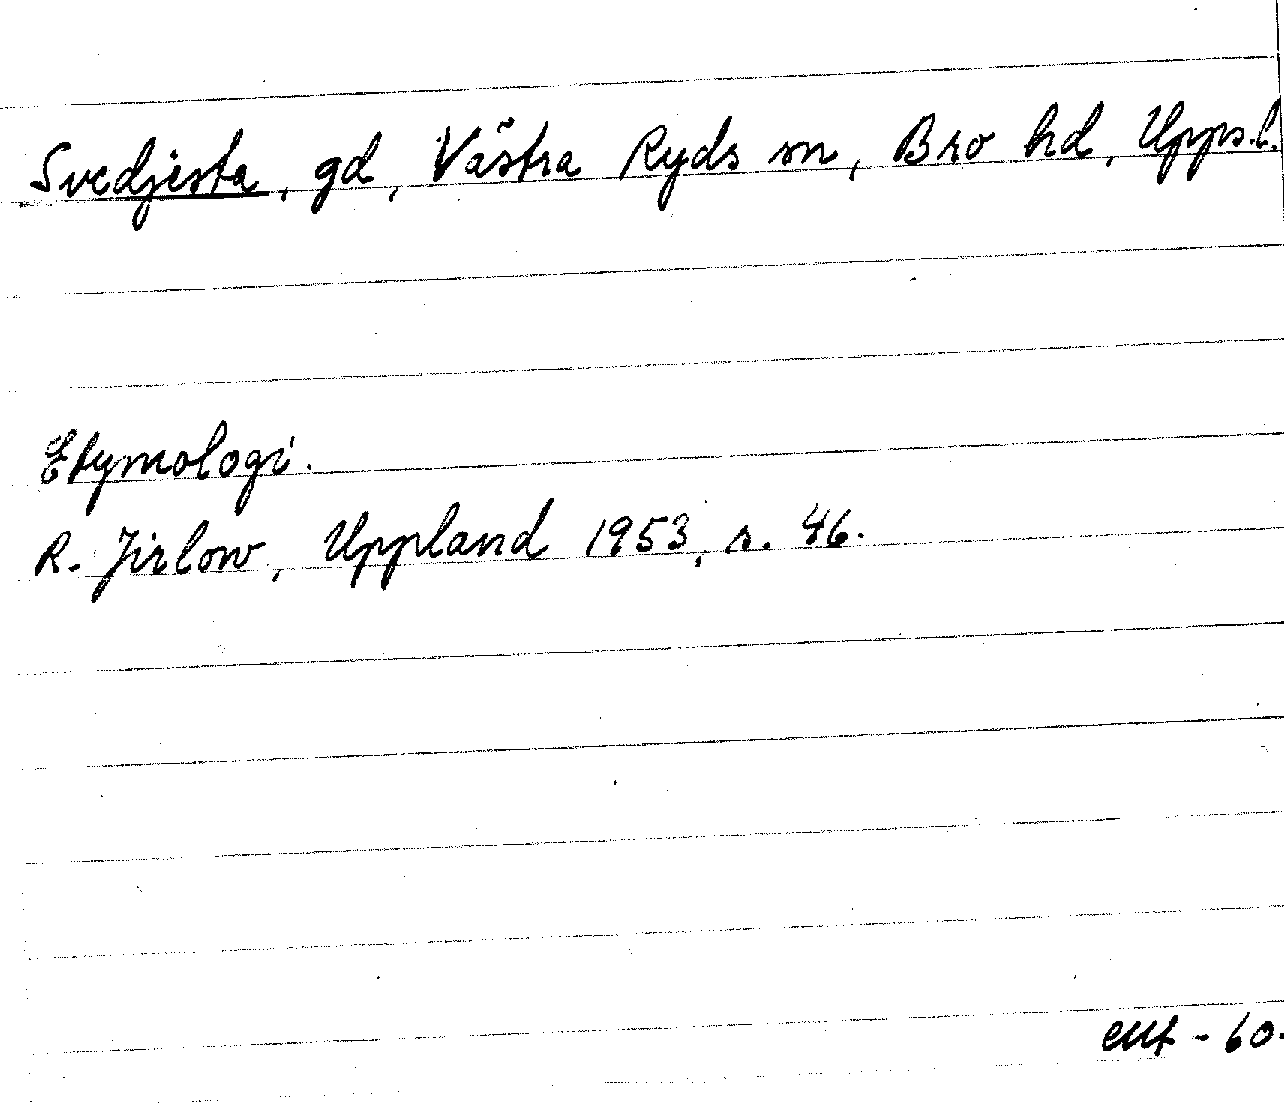 Svedjesta, gd, Västra Ryds sn, Bro hd, Upps.l.
Etymologi.
R. Jirlow, Uppland 1953, s. 46.
- 60.